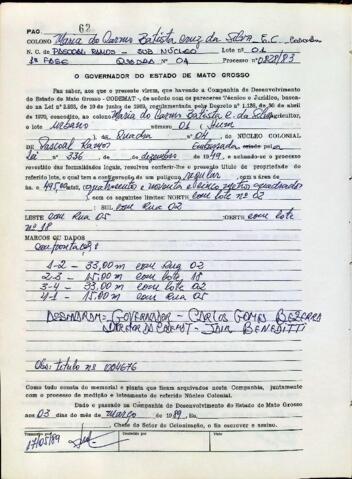 PAO 62
COLONO Maria do Carmo Batista Cruz da Silva E.C.
N. C. de PASCOAL RAMOS - SUB NÚCLEO Lote nº 01
1ª FASE QUADRA Nº 04 Processo nº 0828/83
O GOVERNADOR DO ESTADO DE MATO GROSSO
Faz saber, aos que a presente virem, que havendo a Companhia de Desenvolvimento
do Estado de Mato Grosso - CODEMAT -, de acôrdo com os pareceres Técnico e Jurídico, basea-
do na Lei nº de de junho de regulamentada pelo Decreto nº de 30 de abril
de 1970, concedido, ao colono Maria do Carmo Batista C. da Silva agricultor,
o lote urbano número 01 (um
na Quadra 04 DO NÚCLEO COLONIAL
de Pascoal Ramos pela
Lei nº 336, de de dezembro de 1949, e achando-se o processo
revestido das formalidades legais, resolveu conferir-lhe o presente título de propriedade do
referido lote, o qual tem a configuração de um polígono regular, com a área de
495,00 m², quatrocentos e noventa e cinco metros quadrados
com os seguintes limites: NORTE com lote nº 02
SUL com Rua 02
LESTE com Rua 05 OESTE com lote
nº 18
MARCOS OU DADOS
confrontações
1-2 - 33,00 m com Rua 02
2-3 - 15,00 m com lote 18
3-4 - 33,00 m com lote 02
4-1 - 15,00 m com Rua 05
GOVERNADOR - CARLOS GOMES BEZERRA
DIRETOR DA CODEMAT - BENEDITTI
Obs: título nº 004676
Como tudo consta do memorial e planta que ficam arquivados nesta Companhia, juntamente
com o processo de medição e loteamento do referido Núcleo Colonial.
Dado e passado na Companhia de Desenvolvimento do Estado de Mato Grosso
aos 03 dias do mês de março de 1989. Eu,
Chefe do Setor de Colonização, o fiz escrever e assino.
Transcrito em Conferido por Visto
17/05/89